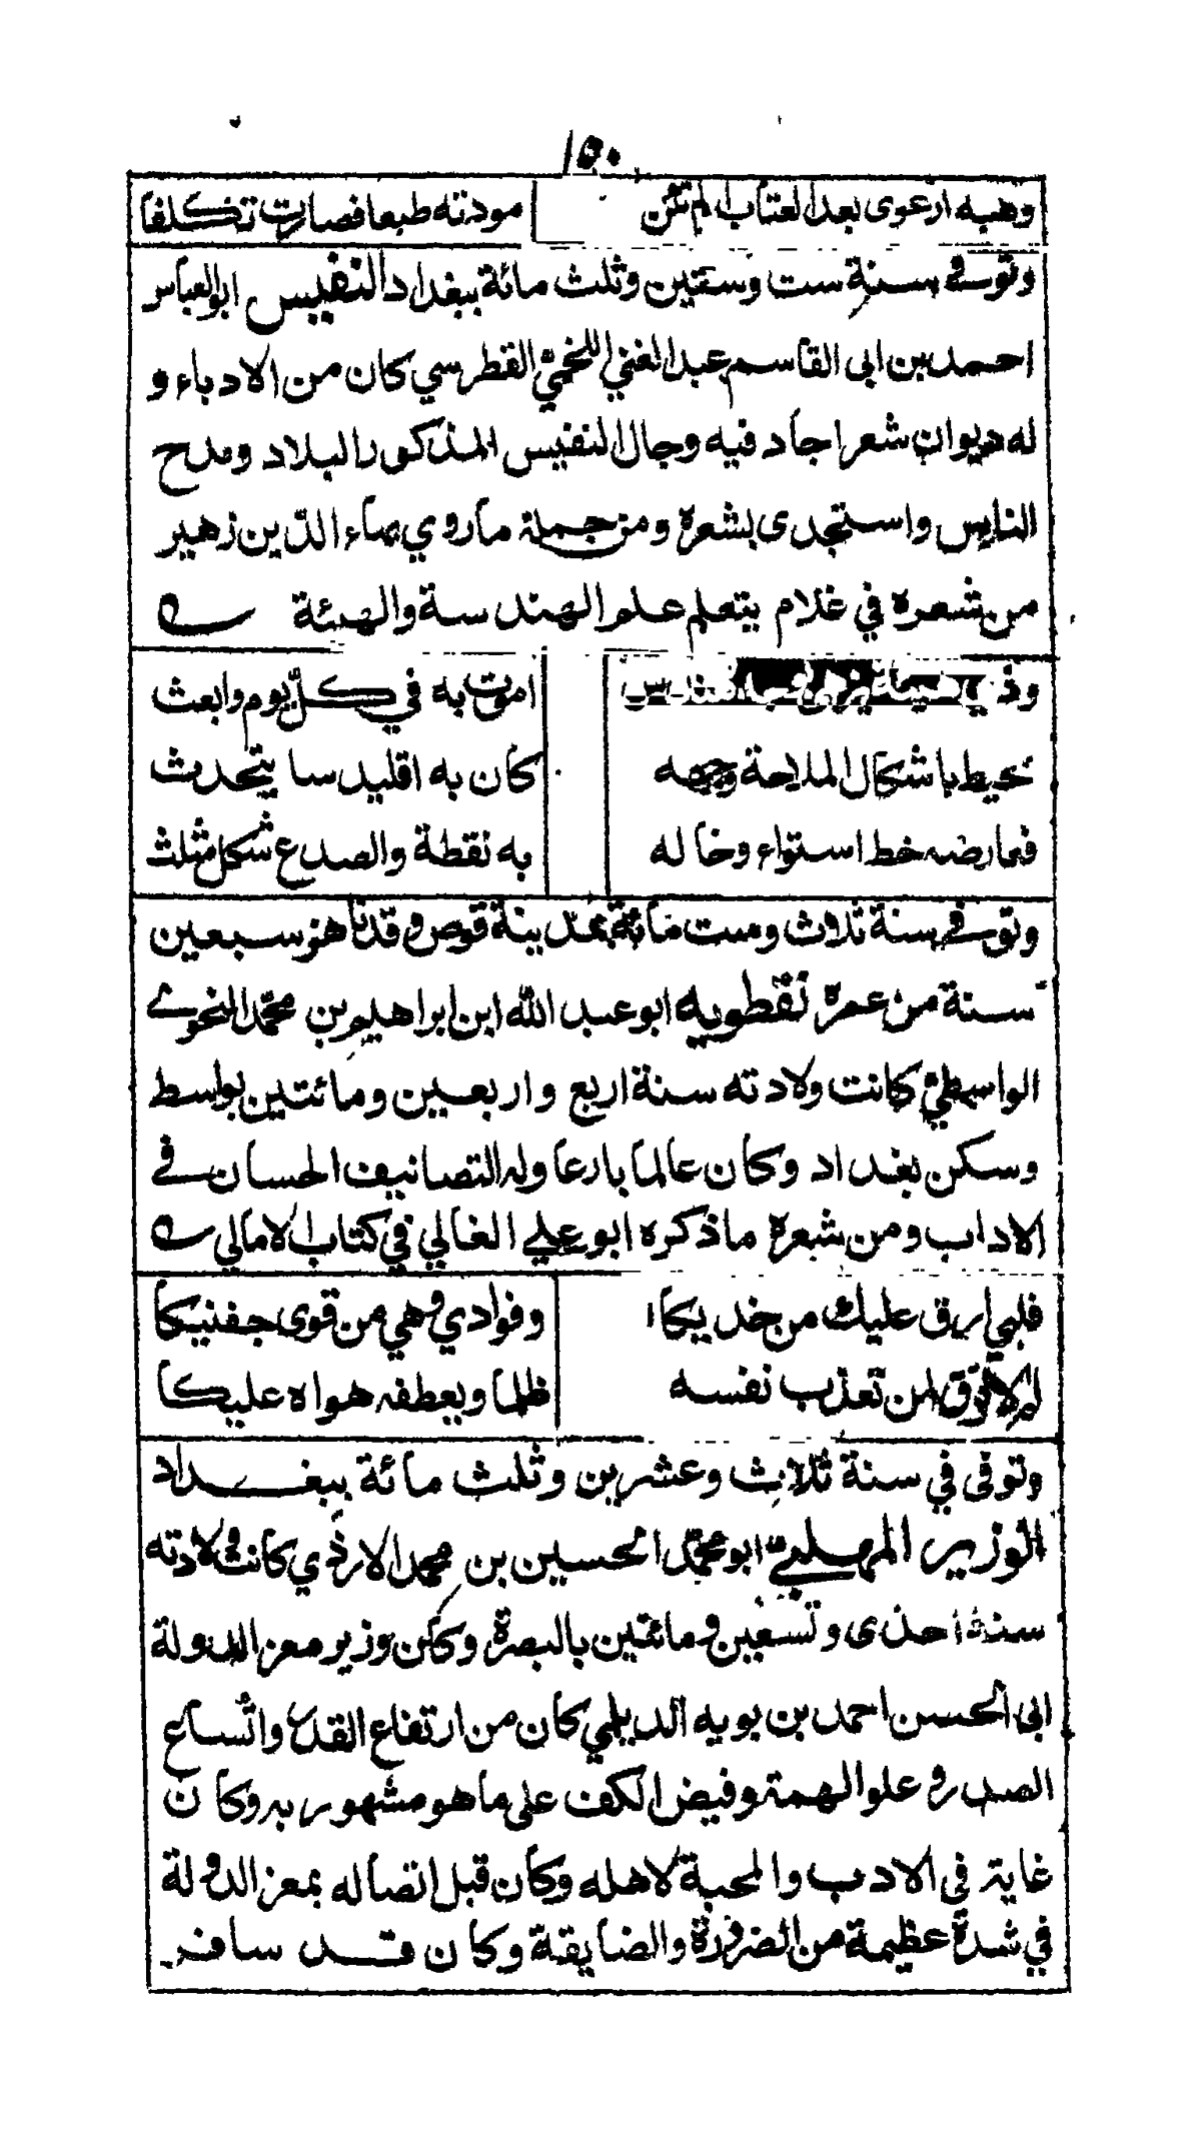 ١٥٠
وهبه ارعوى بعد العتاب الم تكن مودته طبعا فصارت تكلفا
وتوفي سنة ست وستين وثلث مائة ببغداد النفيس ابو العباس
احمد بن ابى القاسم عبد الغني اللخمي القطرسي كان من الادباء و
له ديوان شعر اجاد فيه وجال النفيس المذكور البلاد ومدح
الناس واستجدى بشعره ومن جملة ما روي بهاء الدين زهير
من شعره في غلام يتعلم علم الهندسة والهيئة
وذي هيئة يزهى مهندس اموت به في كل يوم وابعث
محيط باشكال الملاحة وجهه كان به اقليدسا يتحدث
فعارضه خط استواء وخاله به نقطة والصدع شكل مثلث
وتوفي سنة ثلاث وست مائة بمدينة قوص وقد ناهز سبعين
سنة من عمره نفطويه ابو عبد الله ابن ابراهيم بن محمد النحوي
الواسطي كانت ولادته سنة اربع واربعين ومائتين بواسط
وسكن بغداد وكان عالما بارعا وله التصانيف الحسان في
الاداب ومن شعره ما ذكره ابو علي الغالي في كتاب الامالي
قلبي ارق عليك من خديكا وفوادي وهي من قوى جفنيكا
لم لا ترق لمن تعذب نفسه ظلما ويعطفه هواه عليكا
وتوفى في سنة ثلاث وعشرين وثلث مائة ببغداد
الوزير المهلبي ابو محمد الحسين بن محمد الازدي كانت ولادته
سنة احدى وتسعين ومائتين بالبصرة وكان وزير معز الدولة
ابى الحسن احمد بن بويه الديلمي كان من ارتفاع القدر واتساع
الصدر وعلو الهمة وفيض الكف على ما هو مشهور به وكان
غاية في الادب والمحبة لاهله وكان قبل اتصاله بمعز الدولة
في شدة عظيمة من الضرورة والضايقة وكان قد سافر